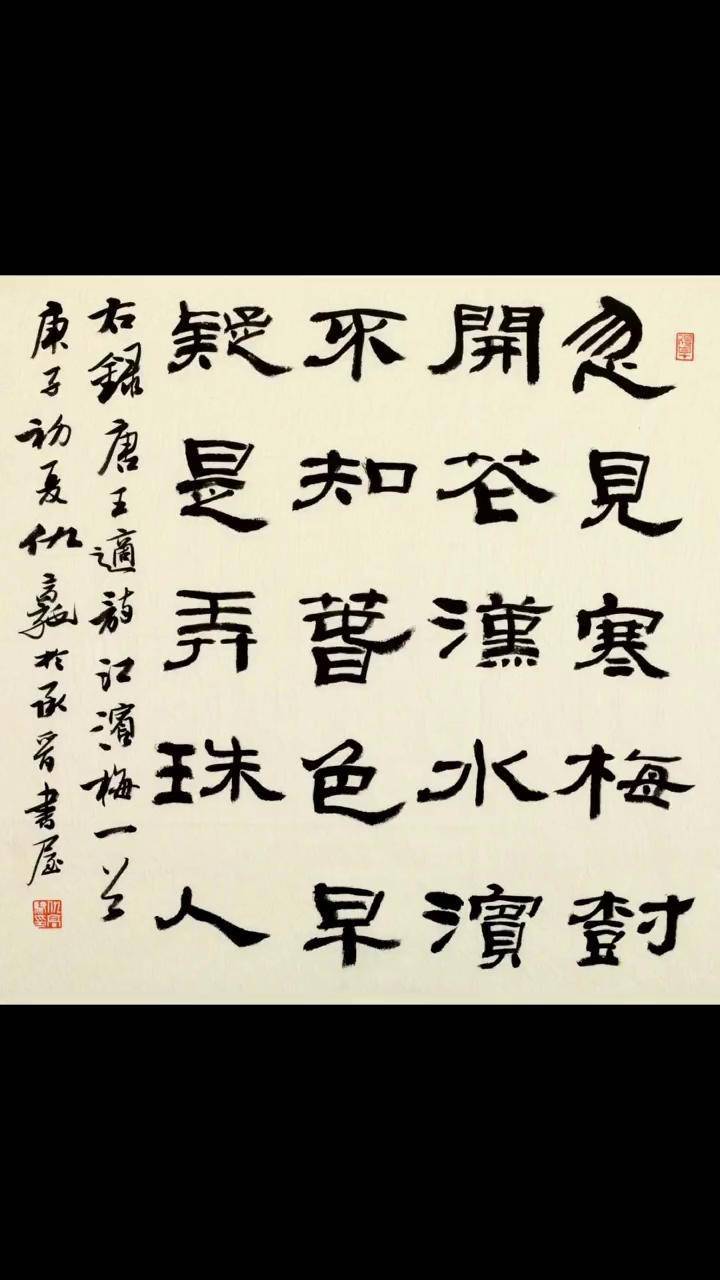 忽見寒梅樹
開花漢水濱
不知萅色早
疑是弄珠人
右錄唐王適詩江濱梅一首
庚子初夏仇高馳於承晉書屋